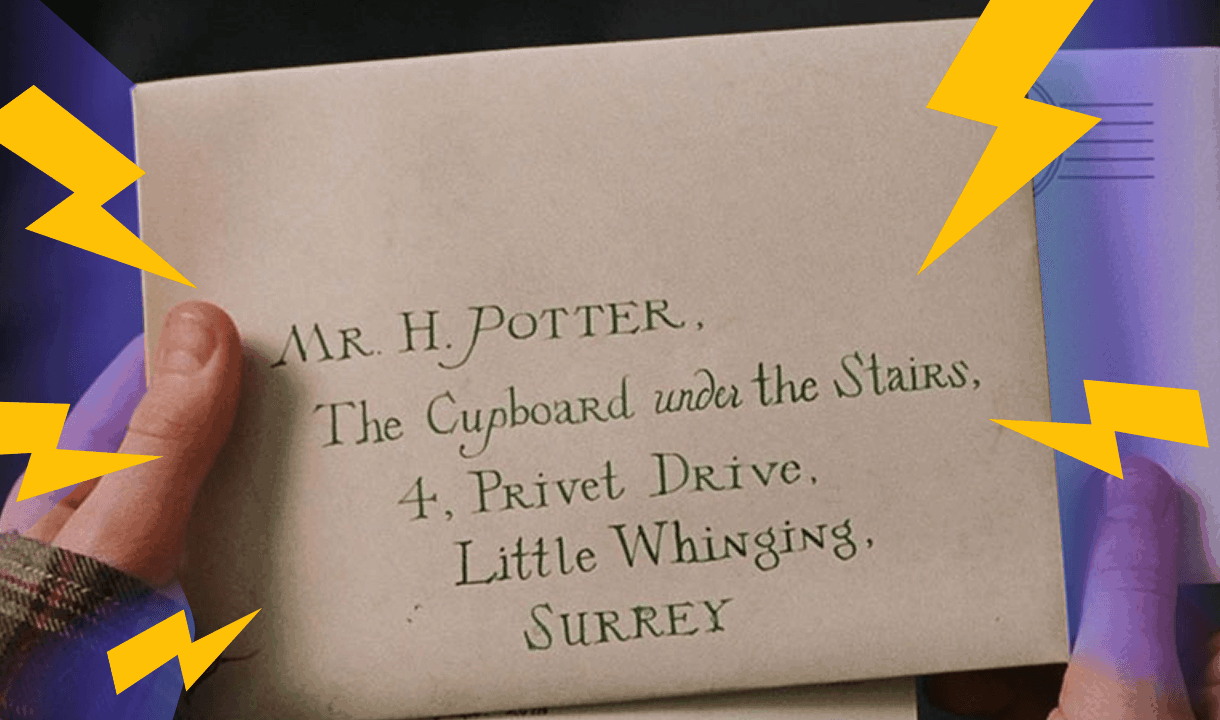 Mr. H. Potter,
The Cupboard under the Stairs,
4, Privet Drive,
Little Whinging,
Surrey